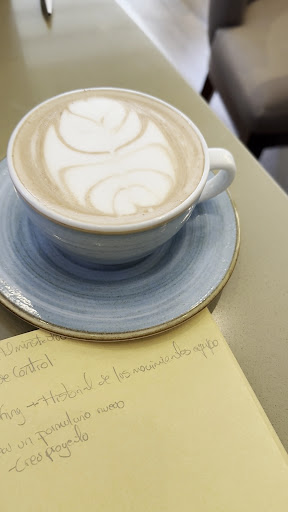 Administrac
se control
ing → Historial de los movimientos
un formulario nuevo
- Creo proyecto